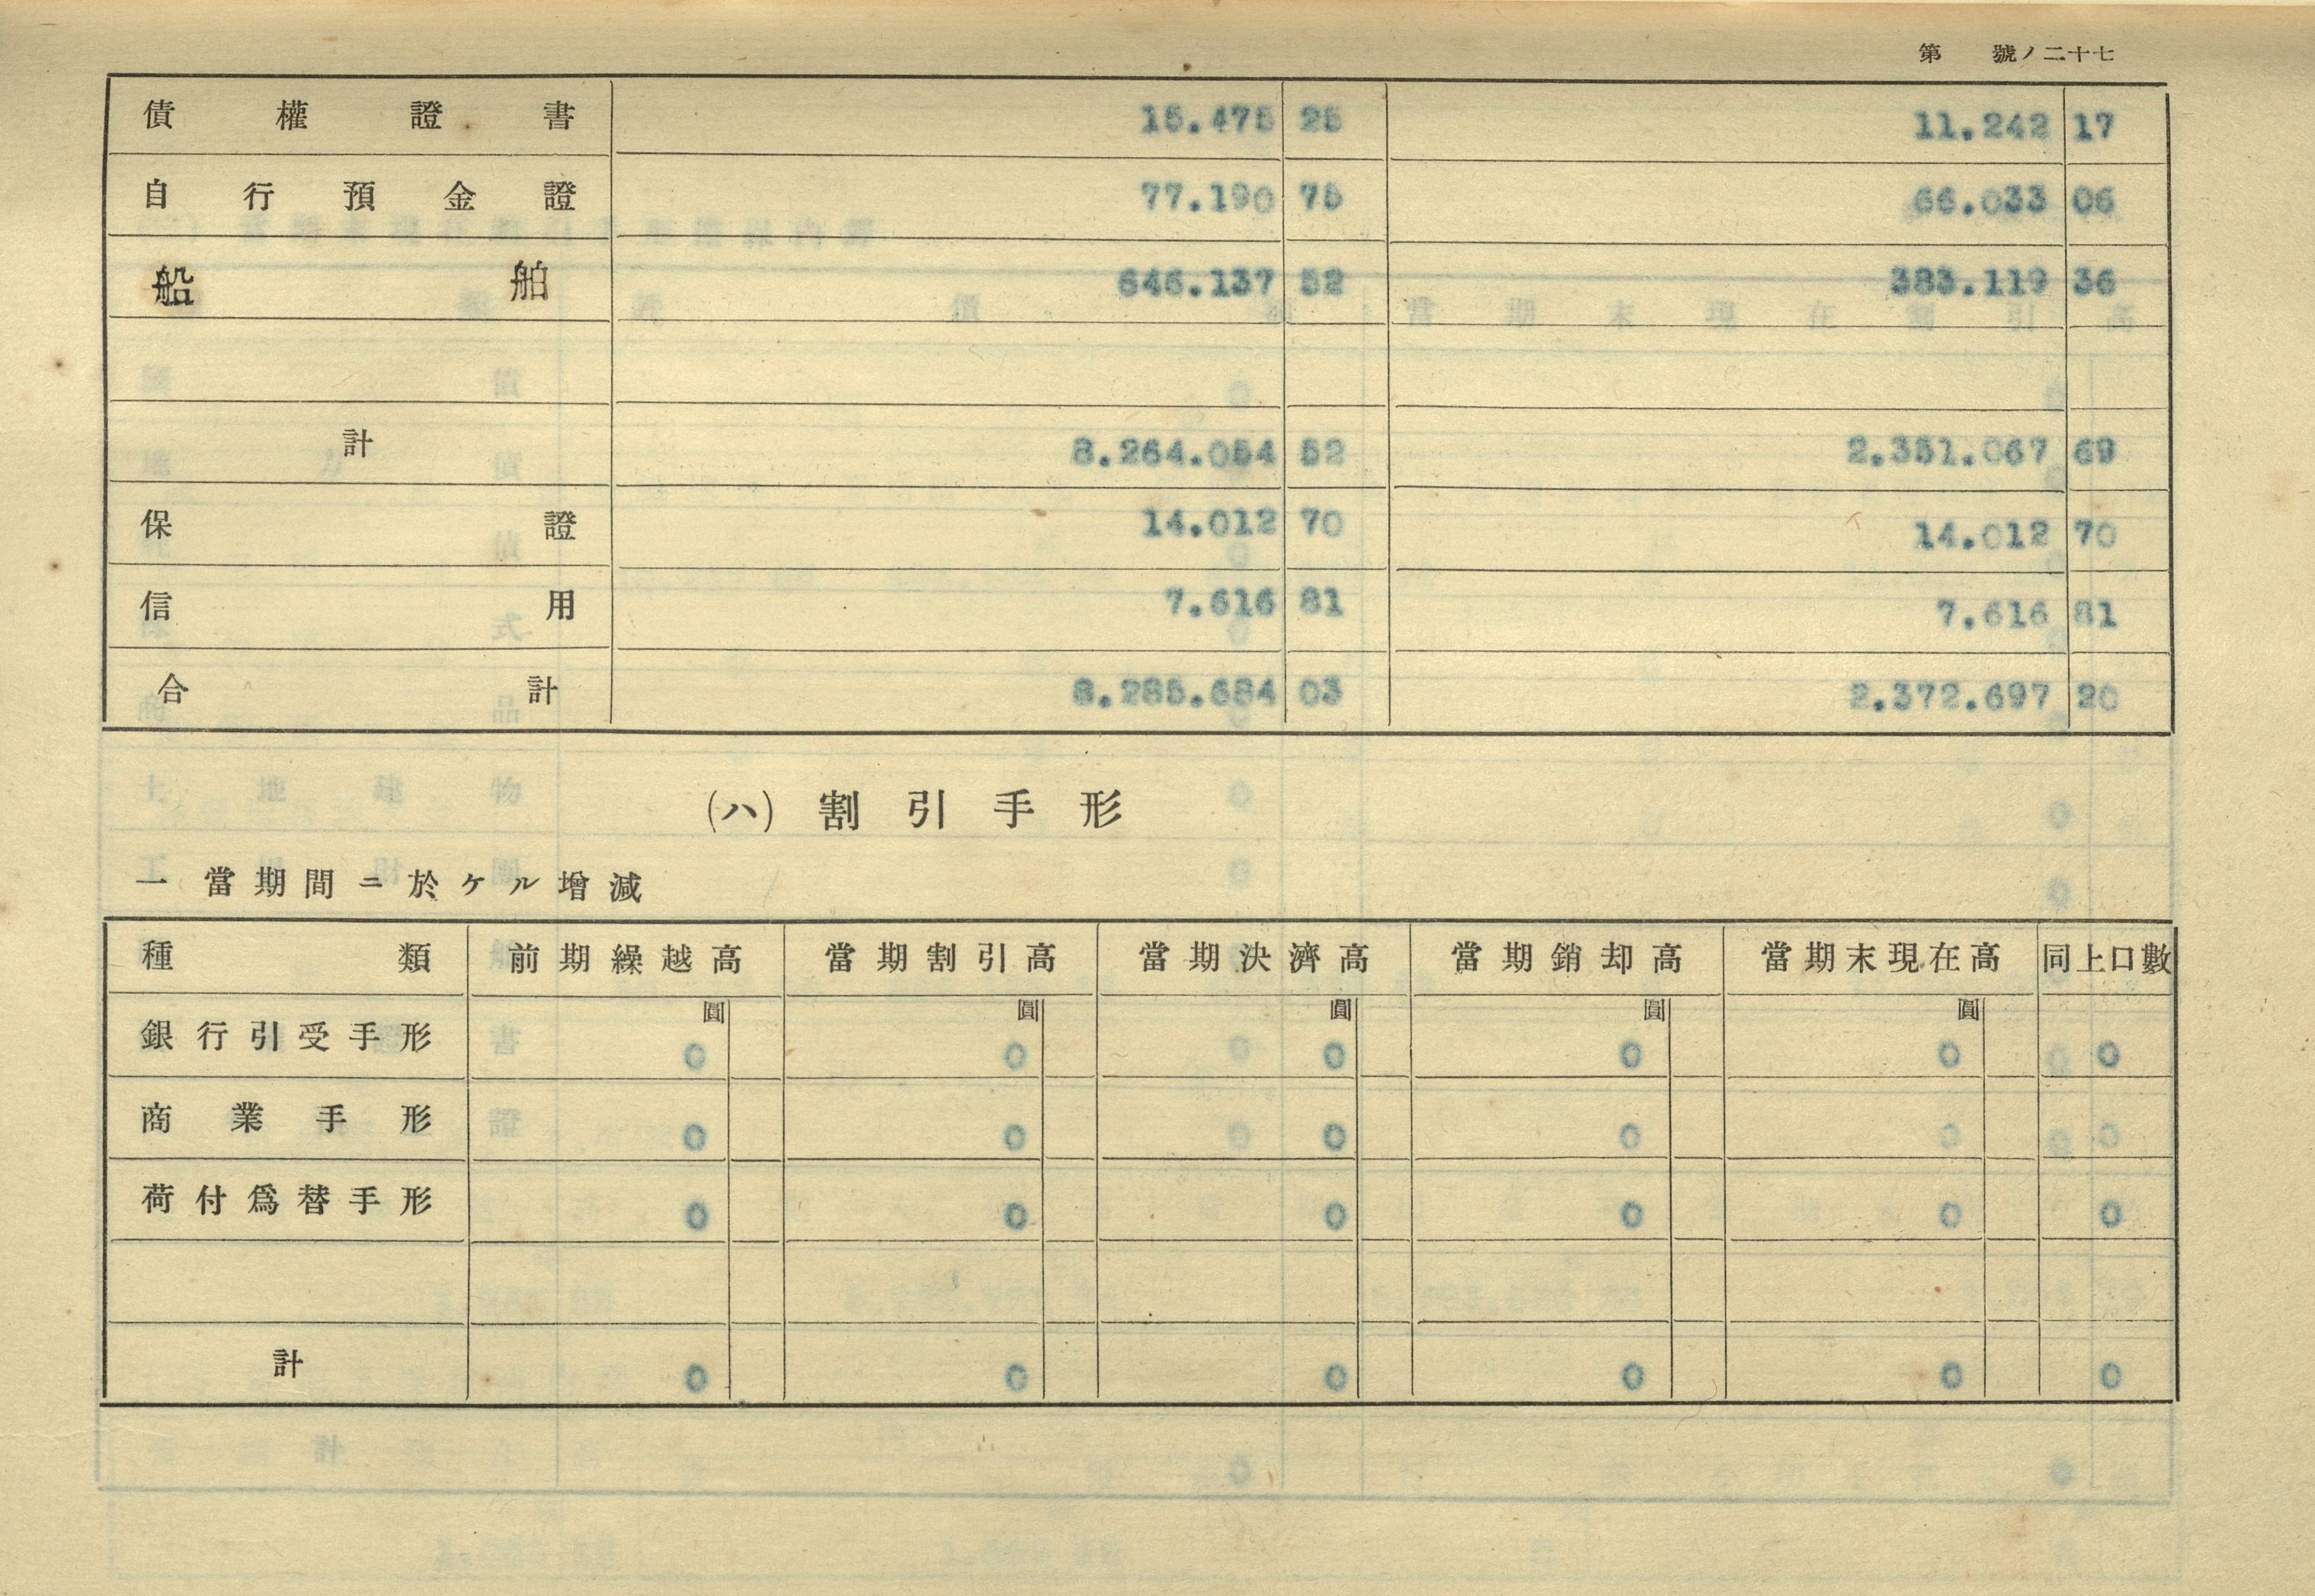 第 號ノ二十七
債權證書 15.475 25 11.242 17
自行預金證 77.190 75 66.033 06
船舶 646.137 52 383.119 36
計 8.264.054 52 2.351.067 69
保證 14.012 70 14.012 70
信用 7.616 81 7.616 81
合計 8.285.684 03 2.372.697 20
(ハ) 割引手形
一 當期間ニ於ケル增減
種類 前期繰越高 當期割引高 當期決濟高 當期銷却高 當期末現在高 同上口數
圓 圓 圓 圓 圓
銀行引受手形 0 0 0 0 0 0
商業手形 0 0 0 0 0 0
荷付爲替手形 0 0 0 0 0 0
計 0 0 0 0 0 0